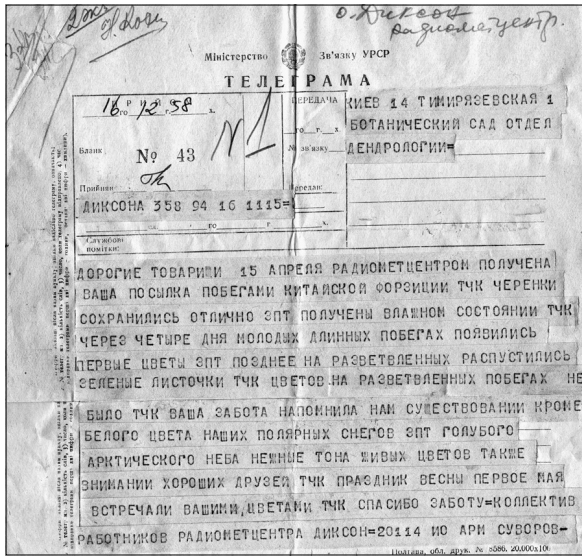 о. Диксон
радиометцентр.
Міністерство Зв'язку УРСР
ТЕЛЕГРАМА
16го 12 г. 58 х.
ПЕРЕДАЧА
го г. х.
Бланк № 43
№1
№ зв'язку
Прийняв
Передав:
КИЕВ 14 ТИМИРЯЗЕВСКАЯ 1
БОТАНИЧЕСКИЙ САД ОТДЕЛ
ДЕНДРОЛОГИИ=
ДИКСОНА 358 94 16 1115=
го г. х.
Службові
помітки:
ДОРОГИЕ ТОВАРИЩИ 15 АПРЕЛЯ РАДИОМЕТЦЕНТРОМ ПОЛУЧЕНА
ВАША ПОСЫЛКА ПОБЕГАМИ КИТАЙСКОЙ ФОРЗИЦИИ ТЧК ЧЕРЕНКИ
СОХРАНИЛИСЬ ОТЛИЧНО ЗПТ ПОЛУЧЕНЫ ВЛАЖНОМ СОСТОЯНИИ ТЧК
ЧЕРЕЗ ЧЕТЫРЕ ДНЯ МОЛОДЫХ ДЛИННЫХ ПОБЕГАХ ПОЯВИЛИСЬ
ПЕРВЫЕ ЦВЕТЫ ЗПТ ПОЗДНЕЕ НА РАЗВЕТВЛЕННЫХ РАСПУСТИЛИСЬ
ЗЕЛЕНЫЕ ЛИСТОЧКИ ТЧК ЦВЕТОВ НА РАЗВЕТВЛЕННЫХ ПОБЕГАХ НЕ
БЫЛО ТЧК ВАША ЗАБОТА НАПОМНИЛА НАМ СУЩЕСТВОВАНИИ КРОМЕ
БЕЛОГО ЦВЕТА НАШИХ ПОЛЯРНЫХ СНЕГОВ ЗПТ ГОЛУБОГО
АРКТИЧЕСКОГО НЕБА НЕЖНЫЕ ТОНА ЖИВЫХ ЦВЕТОВ ТАКЖЕ
ВНИМАНИИ ХОРОШИХ ДРУЗЕЙ ТЧК ПРАЗДНИК ВЕСНЫ ПЕРВОЕ МАЯ
ВСТРЕЧАЛИ ВАШИМИ ЦВЕТАМИ ТЧК СПАСИБО ЗАБОТУ=КОЛЛЕКТИВ
РАБОТНИКОВ РАДИОМЕТЦЕНТРА ДИКСОН=20114 ИО АРМ СУВОРОВ-
Полтава, обл. друк. № 8586. 20,000х100